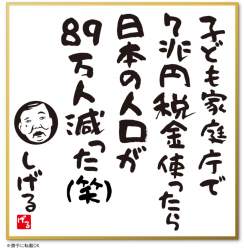 子ども家庭庁で
7兆円税金使ったら
日本の人口が
89万人減った(笑)
しげる
げる
※勝手に転載OK